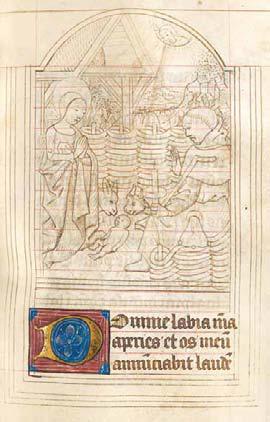 Domine labia mea
aperies et os meū
annunciabit laudē